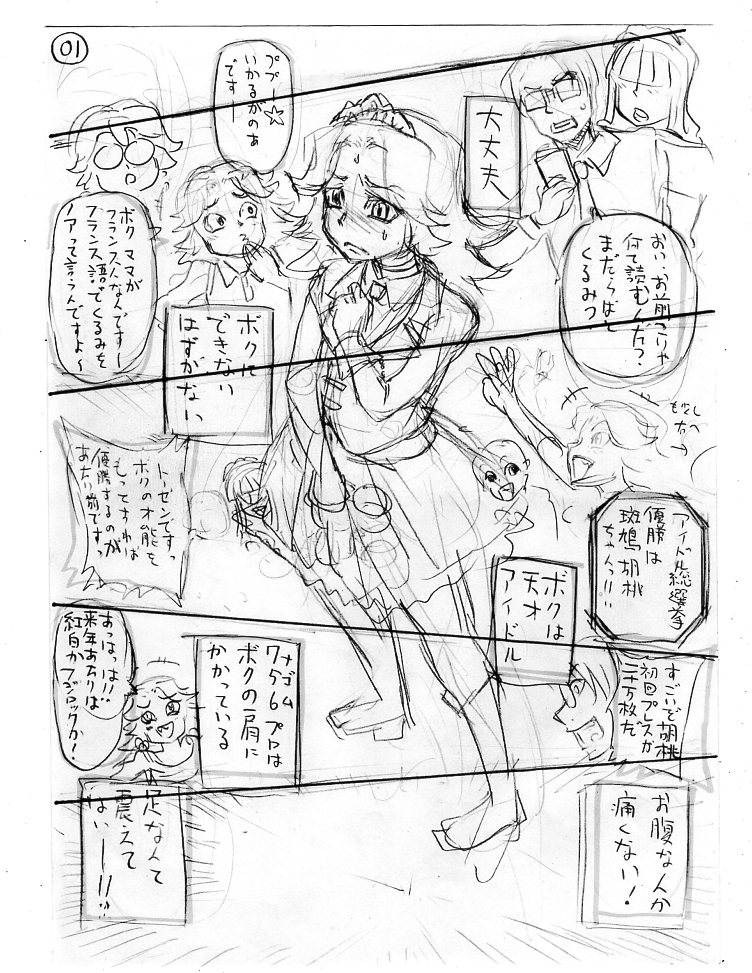 01
大丈夫
おい、お前こりゃ
何て読むんだっ?
まだらばと
くるみっ
ププー☆
いかるがのぁ
ですー
ボク ママが
フランス人なんですー
フランス語でくるみを
ノアって言うんですよ～
ボクに
できない
はずがない
アイドル総選挙
優勝は
斑鳩胡桃
ちゃんっ!!
トーゼンですっ
ボクの才能を
もってすれば
優勝するのが
あたり前ですっ
ボクは
天才
アイドル
すごいぞ胡桃
初回プレスが
二十万枚だ
ナゴム
765プロは
ボクの肩に
かかっている
あっはっは!!
来年あたりは
紅白かフジロックか!
お腹なんか
痛くない!
足なんて
震えて
ない―!!